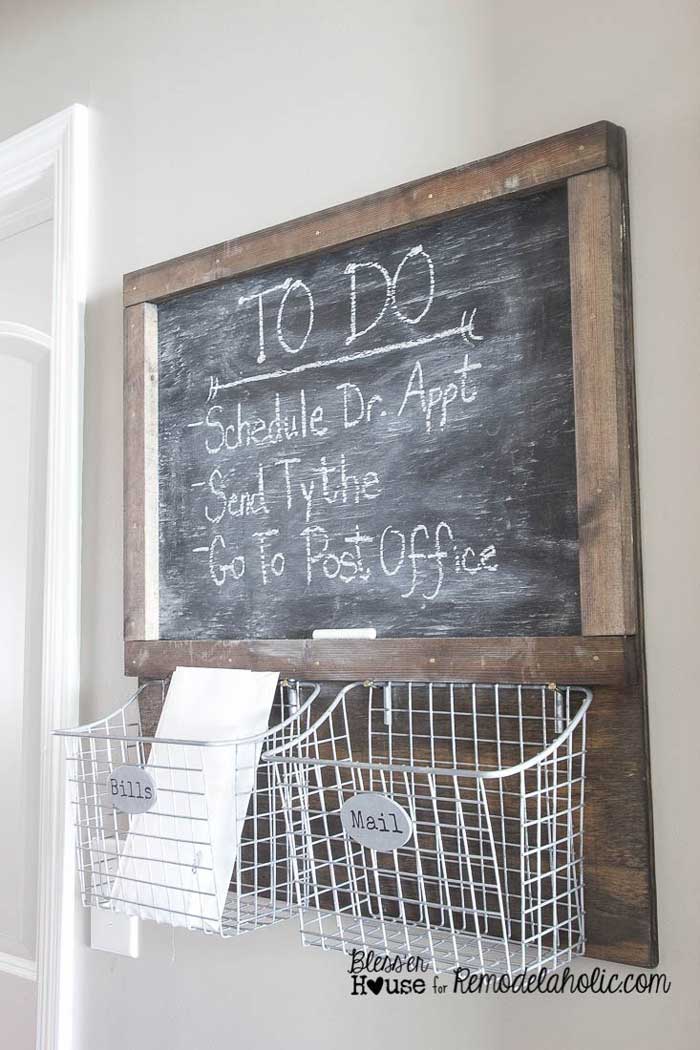 TO DO
-Schedule Dr. Appt
-Send Tythe
-Go To Post Office
Bills
Mail
Blesser
House for Remodelaholic.com